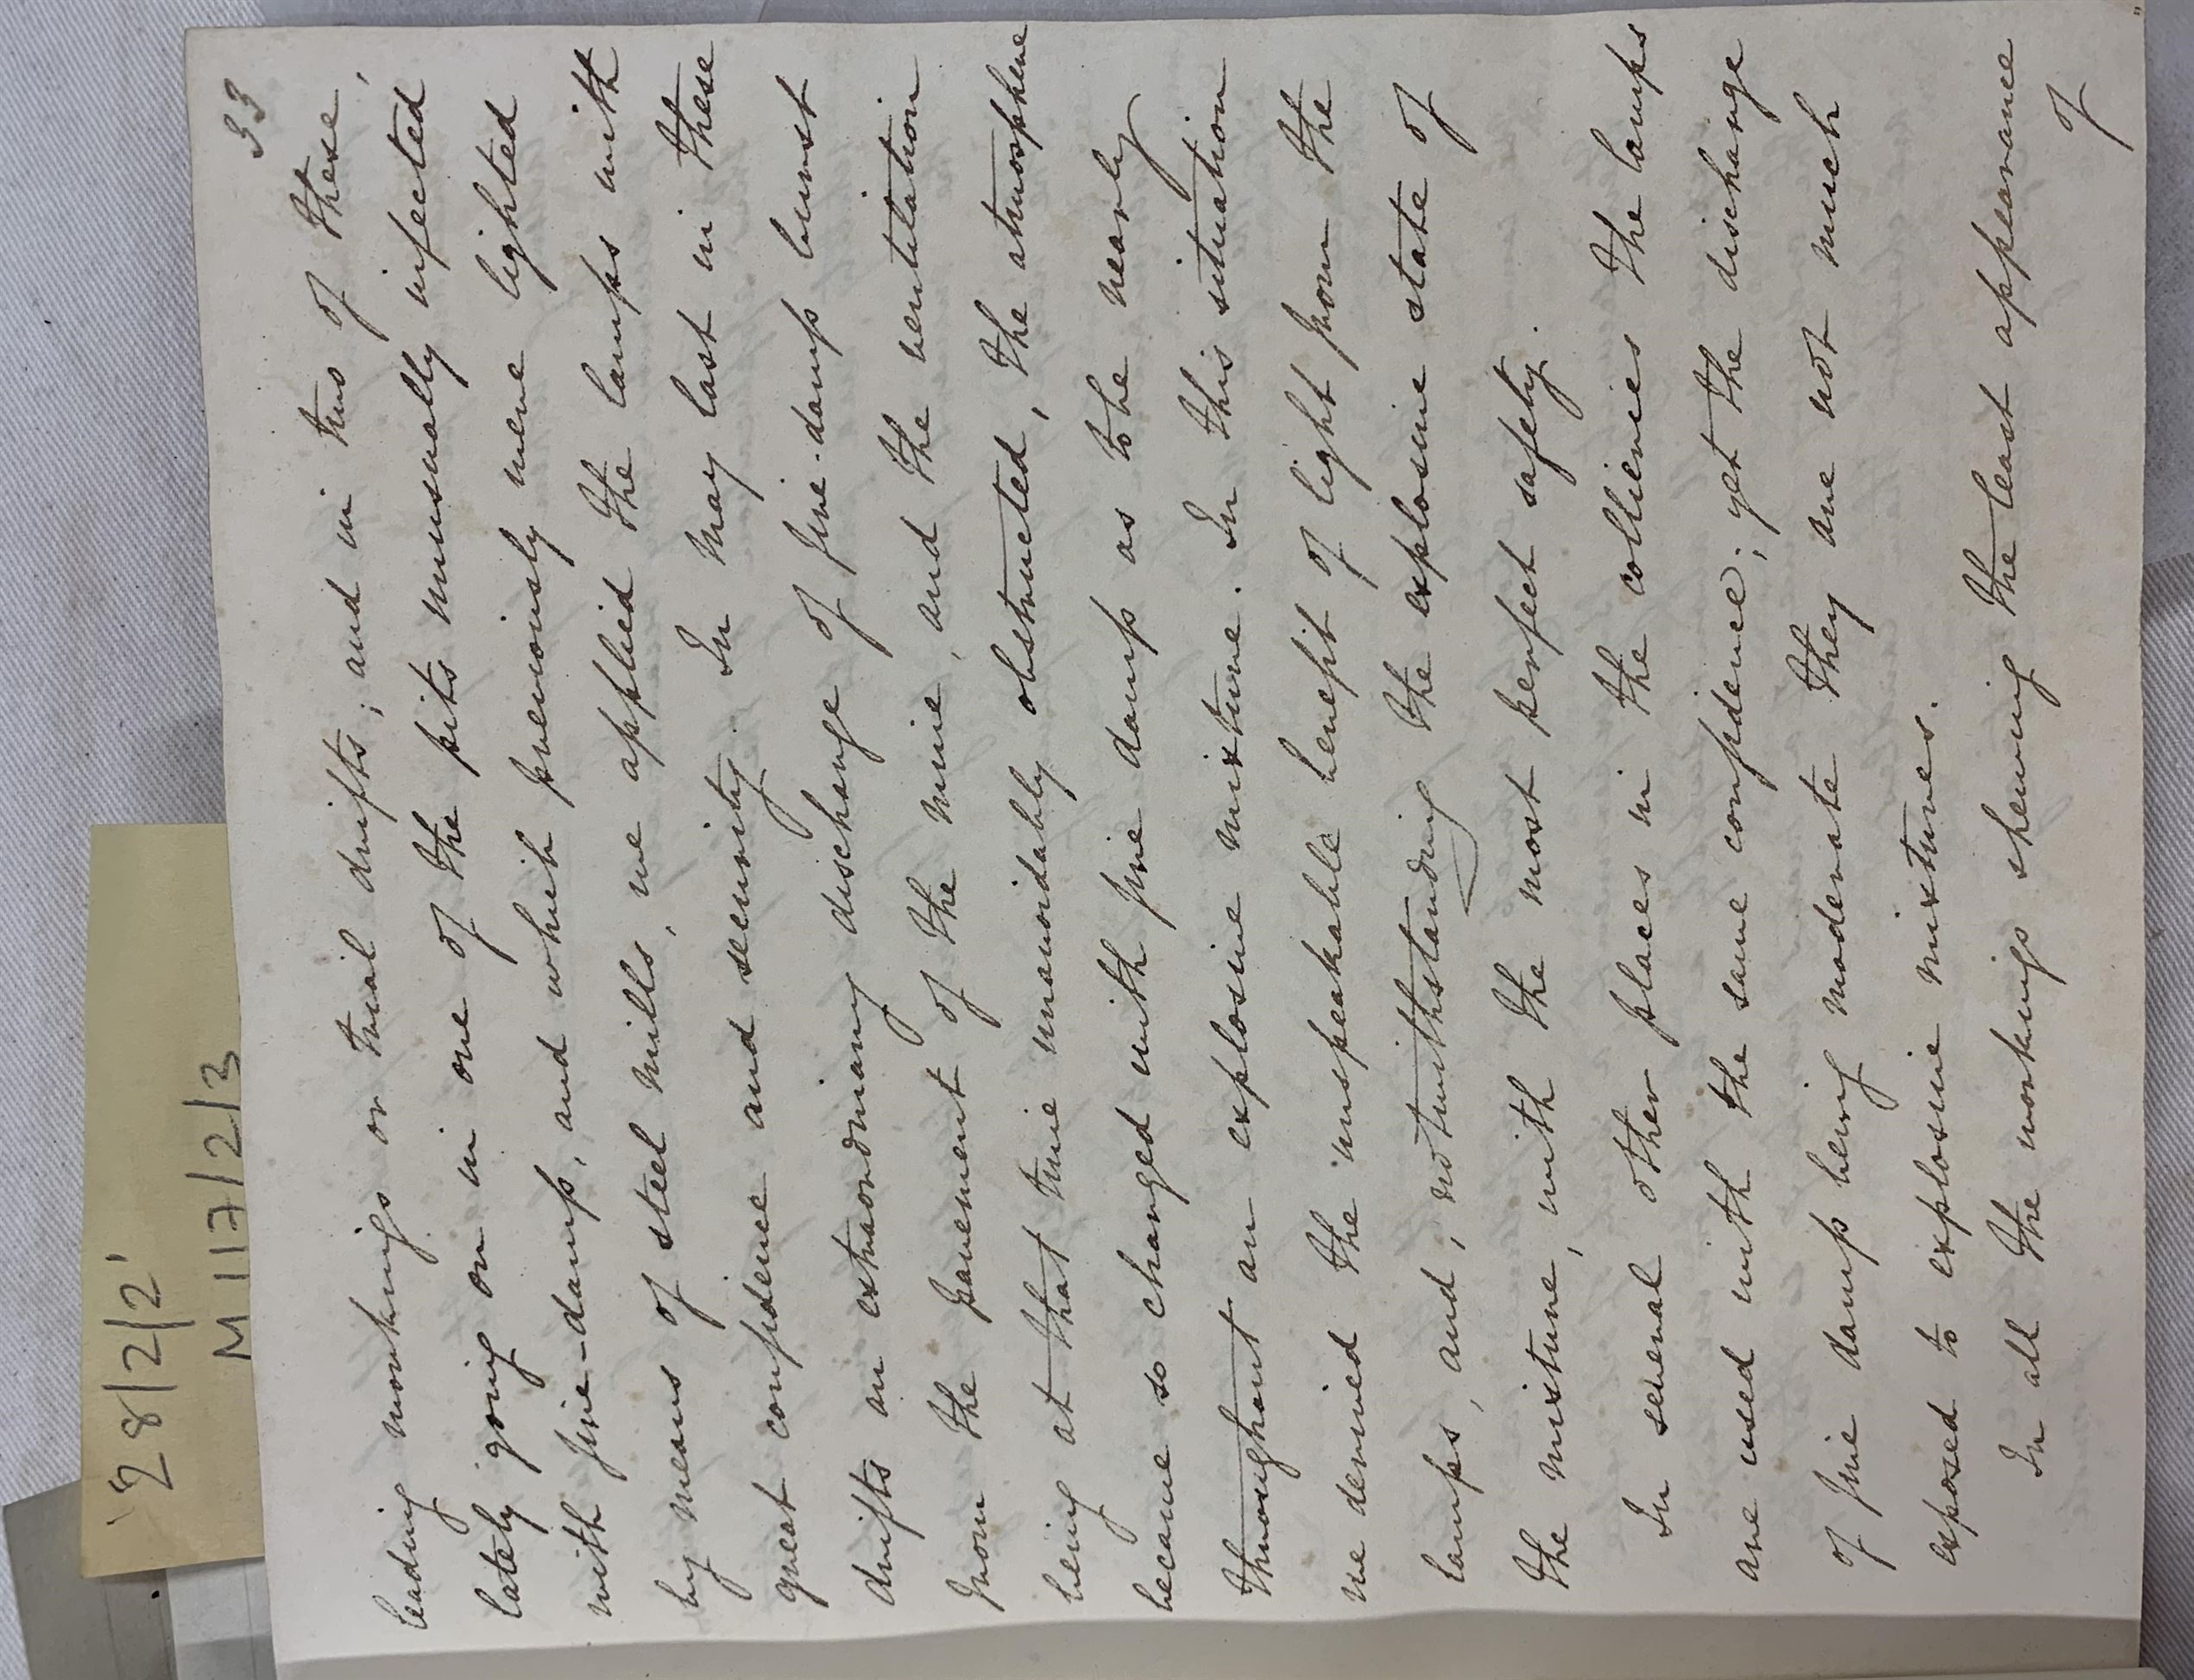 '28/2/2'
M117/2/3
33
leading workings or trial drifts; and in two of these,
lately going on in one of the pits unusually infected
with fire-damp, and which previously were lighted
by means of steel mills, we applied the lamps with
great confidence and security. In May last in these
drifts an extraordinary discharge of fire-damp burst
from the pavement of the mine, and the ventilation
being at that time unavoidably obstructed, the atmosphere
became so changed with fire damp as to be nearly
throughout an explosive mixture. In this situation
we derived the unspeakable benefit of light from the
lamps, and, notwithstanding the explosive state of
the mixture, with the most perfect safety.
In several other places in the collieries the lamps
are used with the same confidence; yet the discharge
of fire damp being moderate they are not much
exposed to explosive mixtures.
In all the workings shewing the least appearance
of